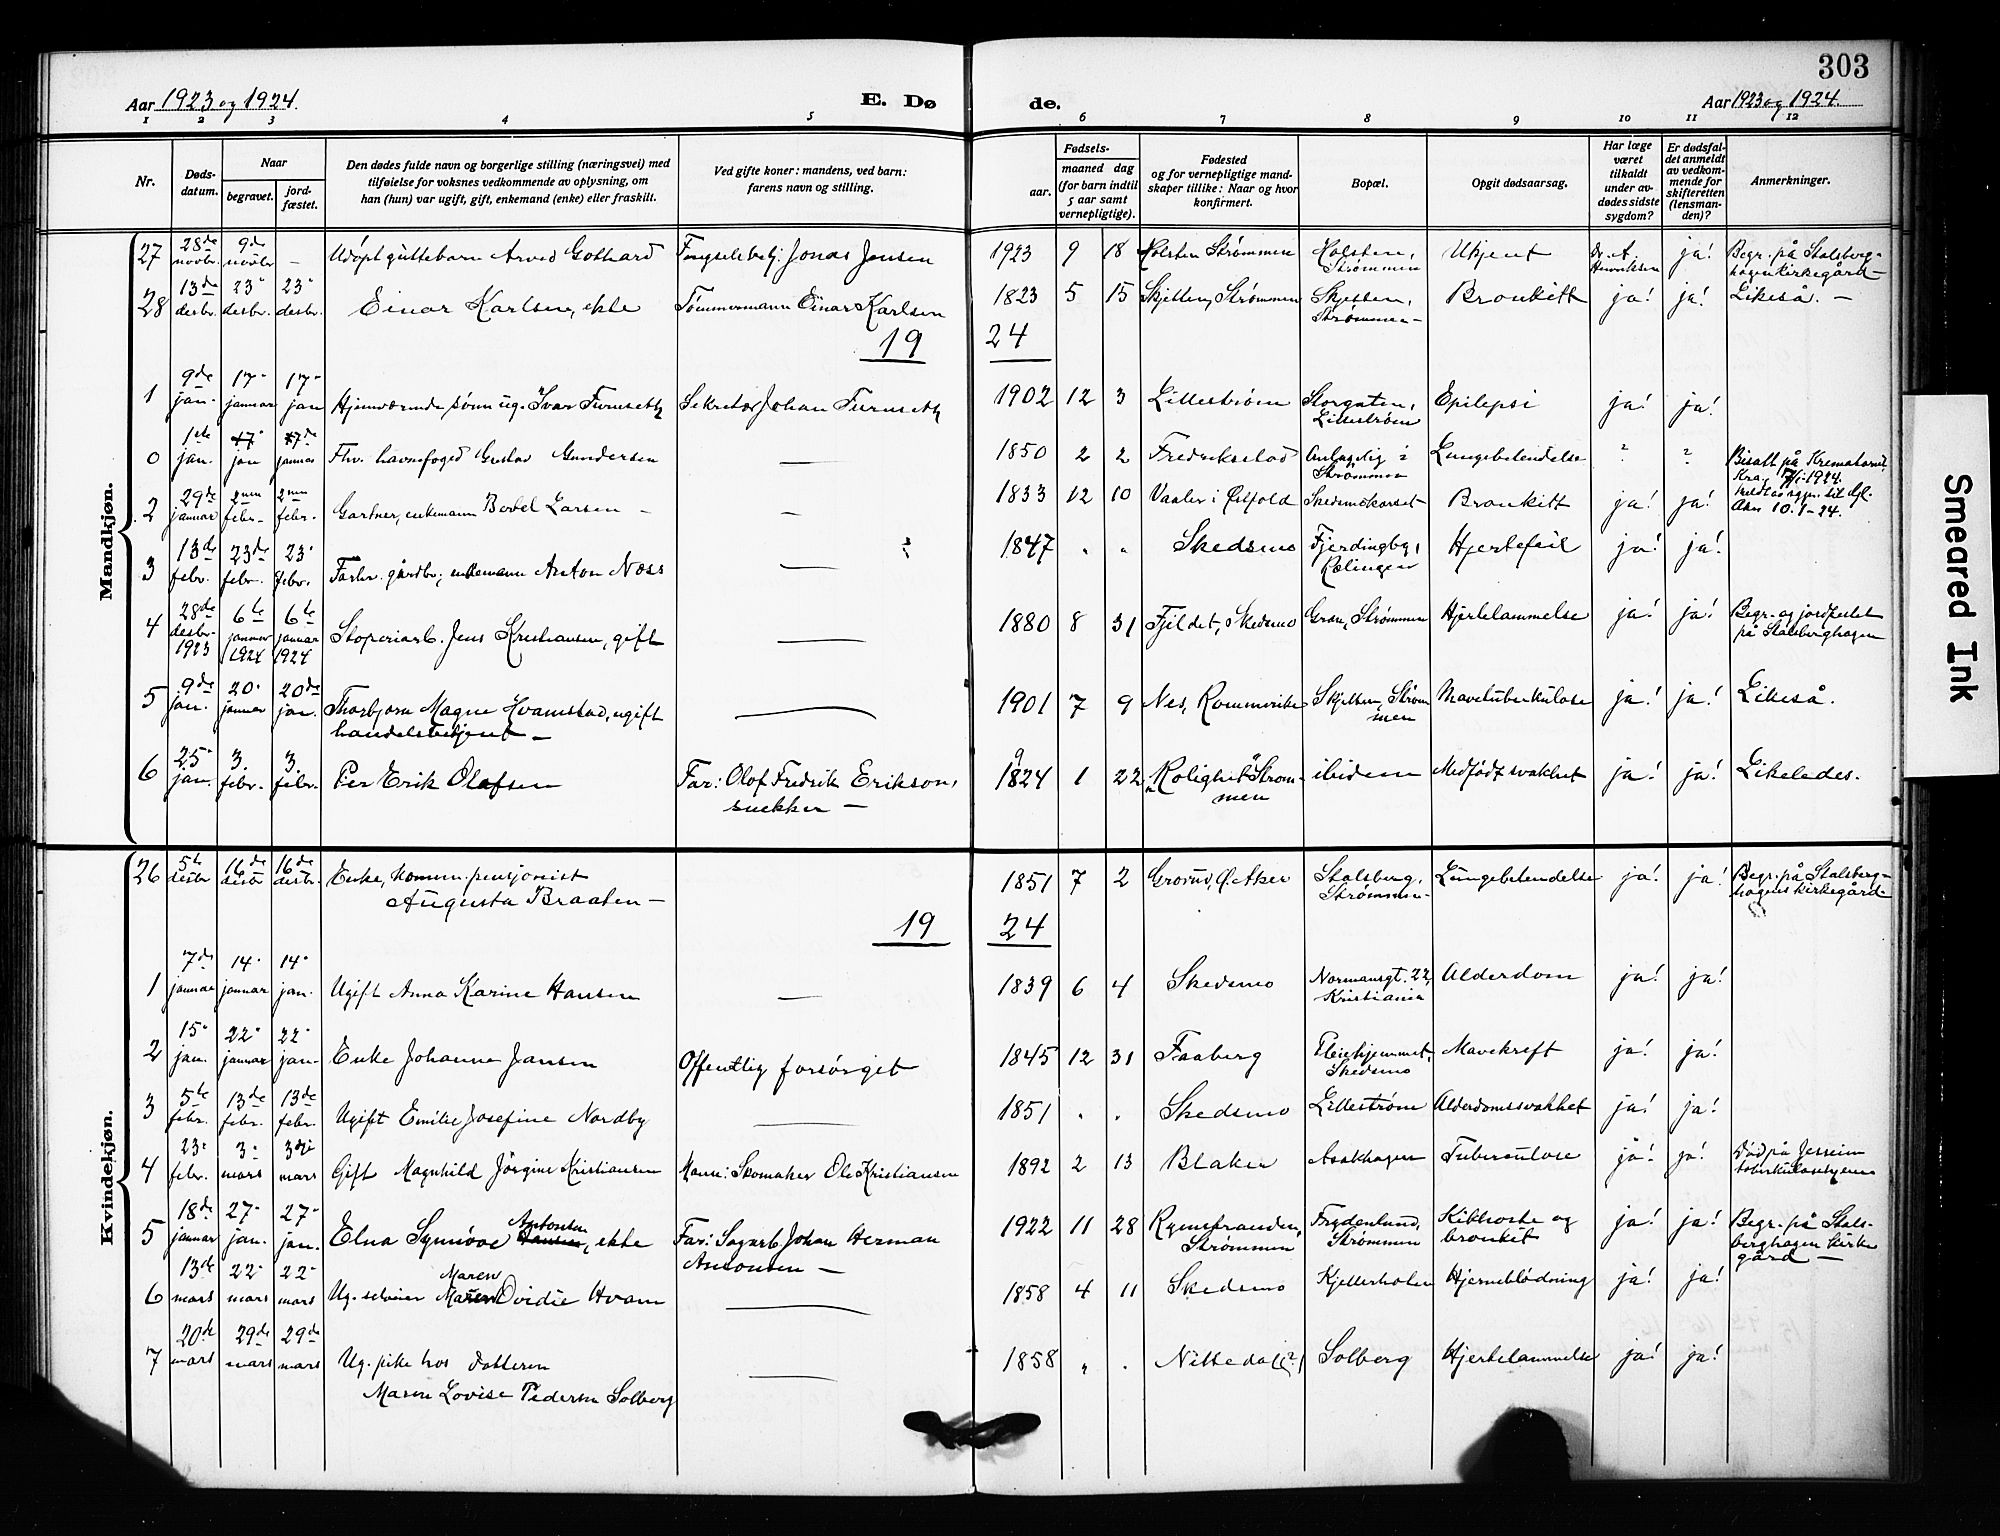 303
Aar 1923 og 1924.
E. Dø
de.
Aar 1923 og 1924.
1 2 3 4 5 6 7 8 9 10 11 12
Nr.
Døds-
datum.
Naar
begravet.
jord-
fæstet.
Den dødes fulde navn og borgerlige stilling (næringsvei) med
tilføielse for voksnes vedkommende av oplysning, om
han (hun) var ugift, gift, enkemand (enke) eller fraskilt.
Ved gifte koner: mandens, ved barn:
farens navn og stilling.
Fødsels-
aar.
maaned dag
(for barn indtil
5 aar samt
vernepligtige).
Fødested
og for vernepligtige mand-
skaper tillike: Naar og hvor
konfirmert.
Bopæl.
Opgit dødsaarsag.
Har læge
været
tilkaldt
under av-
dødes sidste
sygdom?
Er dødsfal-
det anmeldt
av vedkom-
mende for
skifteretten
(lensman-
den)?
Anmerkninger.
Mandkjøn.
27 28de novbr. 9de novbr – Udöpt guttebarn Arved Gothard Fængselsbetj. Jonas Jensen 1923 9 18 Holsten Strømmen Holsten, Strømmen Ukjent Dr. A. Henriksen ja! Begr. på Stalsberg-
hagen kirkegård –
28 13de desbr. 23" desbr. 23" desbr. Einar Karlsen, ekte Tömmermann Einar Karlsen 1823 5 15 Skjetten, Strømmen Skjetten, Strømmen – Bronkitt ja! ja! Likeså. –
19 24
1 9de jan. 17" januar 17" jan Hjemværende sønn ug. Ivar Furuseth Sekretær Johan Furuseth 1902 12 3 Lillestrøm Storgaten, Lillestrøm Epilepsi ja! ja!
0 1ste jan. 17" jan 17de januar Fhv. havnefoged Gustav Gundersen — 1850 2 2 Fredriksstad i Strømmen Lungebetendelse ? ? Bisatt på Krematoriet
1924.
Aker 10.1-24.
2 29de januar 2nen febr. 2nen febr. Gartner, enkemann Bottel Larsen – – 1833 12 10 Vaaler i Østfold Skedsmokorset – Bronkitt ja! ja!
3 13de febr. 23de febr. 23" febr. Forhv. gårdbr; enkemann Anton Næss — ? 1847 " " Skedsmo Fjerdingby, Rælingen Hjertefeil ja! ja!
4 28de desbr. 1923 6te januar 1924 6te januar 1924 Støperiarb. Jens Kristiansen, gift — 1880 8 31 Fjildet, Skedsmo Gran, Strømmen Hjertelammelse ja! ja! Begr. og jordfestet
på Stalsberghagen
5 9de jan. 20" januar 20de jan. Thorbjørn Magne Hvamstad, ugift
handelsbetjent – — 1901 7 9 Nes, Rommerike Skjetten, Strøm
men Mavetuberkulose ja! ja! Likeså.
6 25" jan. 3. febr. 3. febr. Per Erik Olafsen Far: Olof Fredrik Erikson,
snekker – 1824 9 1 22 "Rolighet" Strøm-
men ibidem Medfødt svakhet ja! ja! Likeledes.
Kvindekjøn.
26 5te desbr 16de desbr 16de desbr. Enke, komm. pensjonist
Augusta Braaten – 1851 7 2 Grorud, Ø. Aker Stalsberg, Strømmen – Lungebetendelse ja! ja! Begr. på Stalsberg-
hagens kirkegård –
19 24
1 7de januar 14" januar 14" jan. Ugift Anna Karine Hansen — 1839 6 4 Skedsmo Normansgt. 22, Kristiania Alderdom ja! ja!
2 15" jan. 22" januar 22" jan – Enke Johanne Jansen Offentlig forsörget 1845 12 31 Faaberg Pleiehjemmet, Skedsmo Mavekreft ja! ja!
3 5te febr. 13de febr. 13de febr. Ugift Emilie Josefine Nordby — 1851 " " Skedsmo Lillestrøm Alderdomssvakhet ja! ja!
4 23" febr. 3" mars 3dje mars Gift Magnhild Jörgine Kristiansen Mann: Skomaker Ole Kristiansen 1892 2 13 Blaker Asakhagen Tuberculose ja! ja! Död på Jessheim
tuberkulosehjem
5 18de januar 27" jan. 27" jan. Elna Synnöve Antonsen Jansen, ekte Far: Sagarb. Johan Herman
Antonsen – 1922 11 28 Strømmen Frydenlund, Strømmen Kikhoste og
bronkit ja! ja! Begr. på Stals-
berghagen kirke
gård –
6 13de mars 22" mars 22" mars Ug. selveier Maren Ovidie Hvam — 1858 4 11 Skedsmo Kjellerholen Hjerneblødning ja! ja!
7 20de mars 29de mars 29de mars Ug. pike hos datteren
Maren Lovise Pedersen Solberg — 1858 " " Nittedal (?) Solberg Hjertelammelse ja! ja!
Smeared Ink